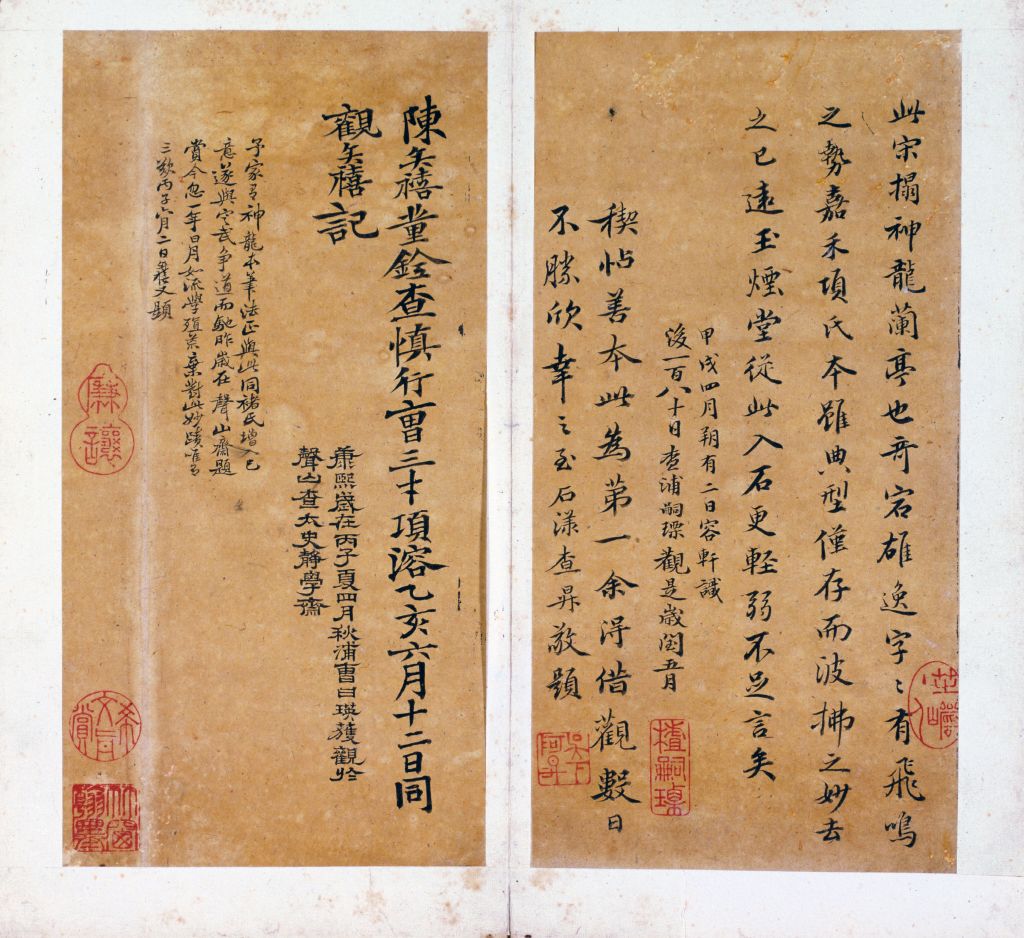 此宋搨神龍蘭亭也奇宕雄逸字〻有飛鳴
之勢嘉禾項氏本雖典型僅存而波拂之妙去
之已遠玉煙堂從此入石更輕弱不足言矣
甲戌四月朔有二日容軒識
後一百八十日查浦嗣瑮觀是歲閏五月
稧帖善本此為第一余得借觀數日
不勝欣幸之至石漾查昇敬題
查嗣瑮
陳矣禧董銓查慎行曹三才項溶乙亥六月十二日同
觀矣禧記
康熙歲在丙子夏四月秋浦曹曰瑛獲觀於
聲山查太史靜學齋
予家有神龍本筆法正與此同褚氏增入己
意遂與定武爭道而馳昨歲在聲山齋題
賞今忽一年日月如流學殖荒棄對此妙蹟唯有
三歎丙子六月二日矣禧又題